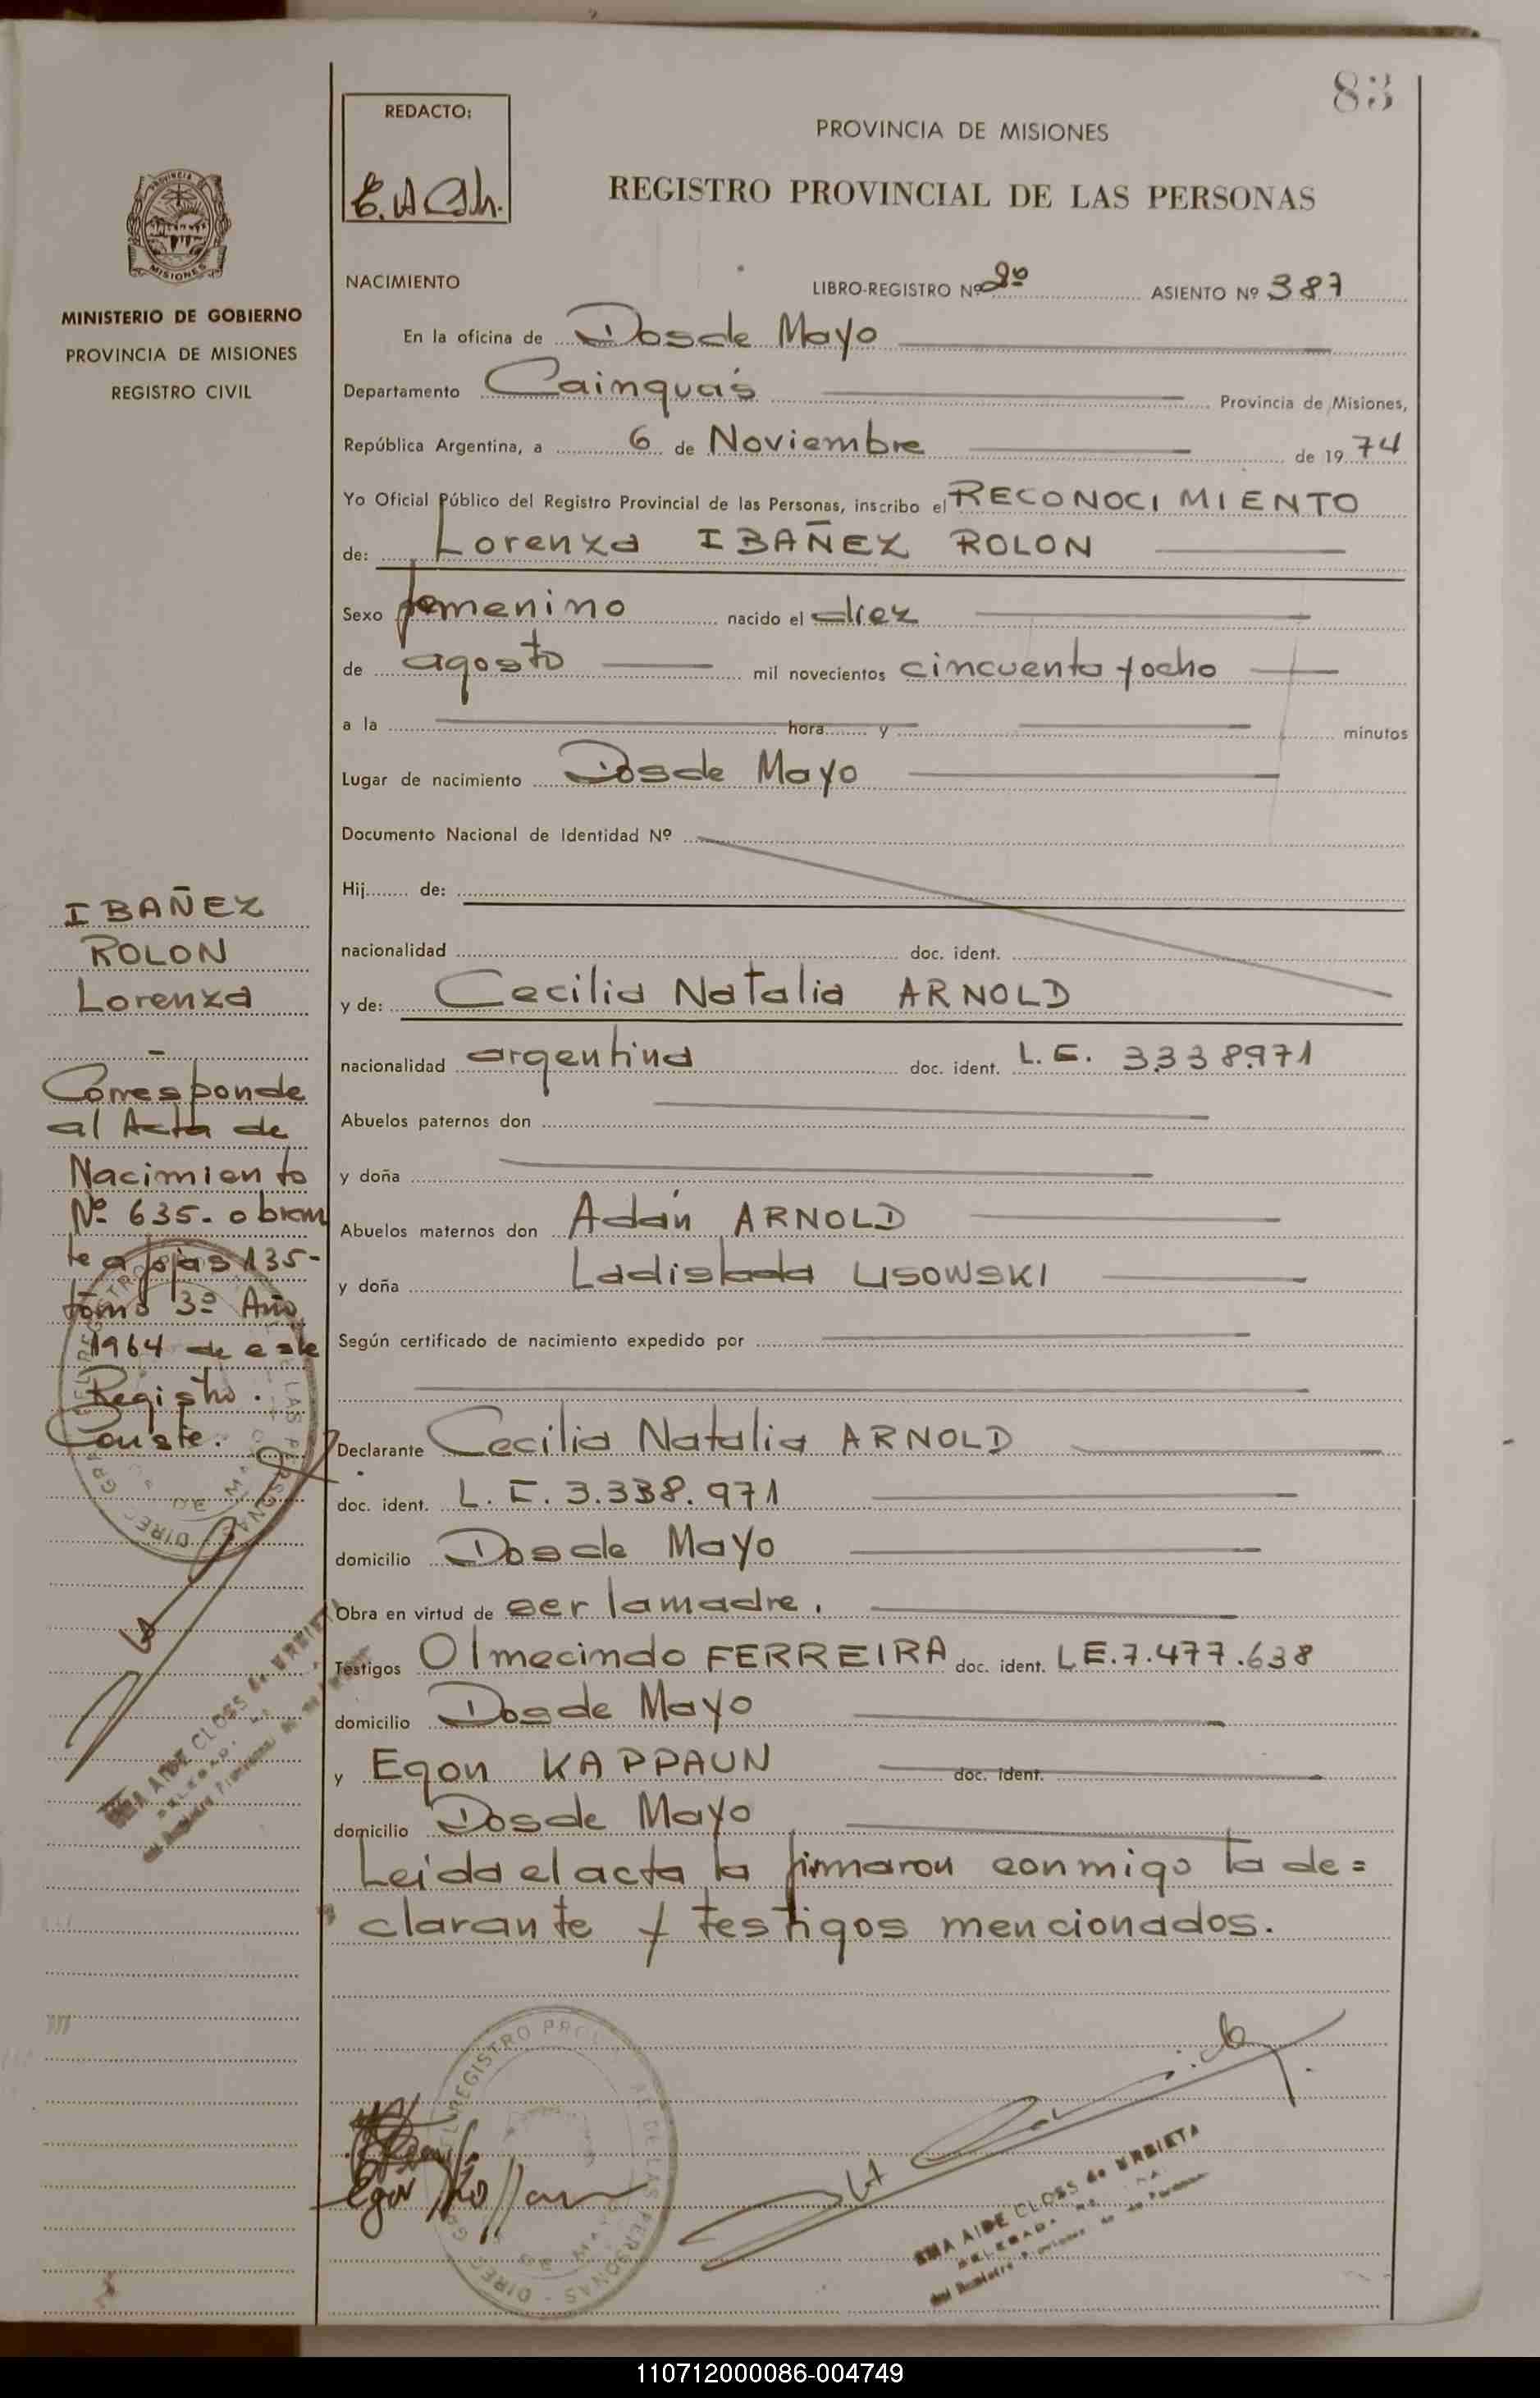 83
REDACTO:
PROVINCIA DE MISIONES
REGISTRO PROVINCIAL DE LAS PERSONAS
MISIONES
MINISTERIO DE GOBIERNO
PROVINCIA DE MISIONES
REGISTRO CIVIL
NACIMIENTO LIBRO-REGISTRO Nº 2º ASIENTO Nº 387
En la oficina de Dos de Mayo
Departamento Cainguás Provincia de Misiones,
República Argentina, a 6 de Noviembre de 19 74
Yo Oficial Público del Registro Provincial de las Personas, inscribo el RECONOCIMIENTO
de: Lorenza IBAÑEZ ROLON
Sexo femenino nacido el diez
de agosto mil novecientos cincuenta y ocho
a la hora y minutos
Lugar de nacimiento Dos de Mayo
Documento Nacional de Identidad Nº
Hij de:
nacionalidad doc. ident.
y de: Cecilia Natalia ARNOLD
nacionalidad argentina doc. ident. L.C. 3.338.971
Abuelos paternos don
y doña
Abuelos maternos don Adán ARNOLD
y doña Ladislada LISOWSKI
Según certificado de nacimiento expedido por
Declarante Cecilia Natalia ARNOLD
doc. ident. L.C. 3.338.971
domicilio Dos de Mayo
Obra en virtud de ser la madre.
Testigos Olmecindo FERREIRA doc. ident. LE.7.477.638
domicilio Dos de Mayo
y Egon KAPPAUN doc. ident.
domicilio Dos de Mayo
Leida el acta la firmaron conmigo la de=
clarante y testigos mencionados.
IBAÑEZ
ROLON
Lorenza
Corresponde
al Acta de
Nacimiento
Nº 635- obran
te a fojas 135-
tomo 3º Año
1964 de este
Registro.
Conste.
AIDE CLOSS de URBIETA
AIDE CLOSS de URBIETA
110712000086-004749